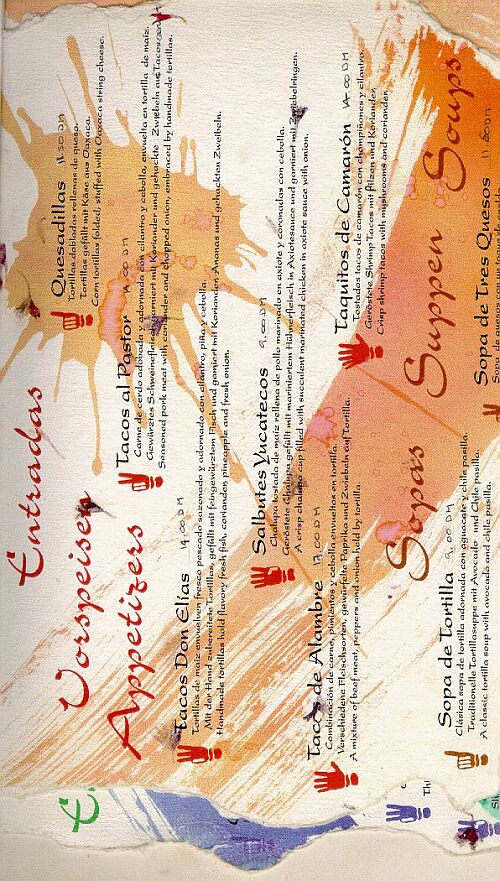 Entradas
Vorspeisen
Appetizers
Quesadillas
Tortillas dobladas rellenas de queso.
Tortillas gefüllt mit Käse aus Oaxaca.
Corn tortillas folded, stuffed with Oaxaca string cheese.
Tacos al Pastor
Carne de cerdo adobada y adornada con cilantro y cebolla, envuelta en tortilla de maíz.
Gewürztes Schweinefleisch garniert mit Koriander und gehackte Zwiebeln auf Tacos
Seasoned pork meat with coriander and chopped onion, embraced by handmade tortillas.
Tacos Don Elías 19.00 DM
Tortillas de maíz envuelven fresco pescado sazonado y adornado con cilantro, piña y cebolla.
Mit der Hand zubereitete Tortillas, gefüllt mit feingewürztem Fisch und garniert mit Koriander, Ananas und gehackten Zweibeln.
Handmade tortillas hold flavory fresh fish, coriander, pineapple and fresh onion.
Salbutes Yucatecos 9.00 DM
Chalupa tostada de maíz rellena de pollo marinado en axiote y coronadas con cebolla.
Geröstete Chalupa gefüllt mit mariniertem Hühnerfleisch in Axiotesauce und garniert mit Zwiebelringen.
A crisp chalupa cup filled with succulent marinated chicken in axiote sauce with onion.
Tacos de Alambre
Combinación de carne, pimientos y cebolla envueltos en tortilla.
Verschiedene Fleischsorten, gewürfelte Paprika und Zwiebeln auf Tortilla.
A mixture of beef meat, peppers and onion held by tortilla.
Taquitos de Camarón
Tostados tacos de camarón con champiñones y cilantro.
Geröstete Shrimp Tacos mit Pilzen und Koriander.
Crisp shrimp tacos with mushrooms and coriander.
Sopas
Suppen
Soups
Sopa de Tortilla 9.00 DM
Clásica sopa de tortilla adornada con aguacate y chile pasilla.
Traditionelle Tortillasuppe mit Avocado - und Chile pasilla.
A classic tortilla soup with avocado and chile pasilla.
Sopa de Tres Quesos